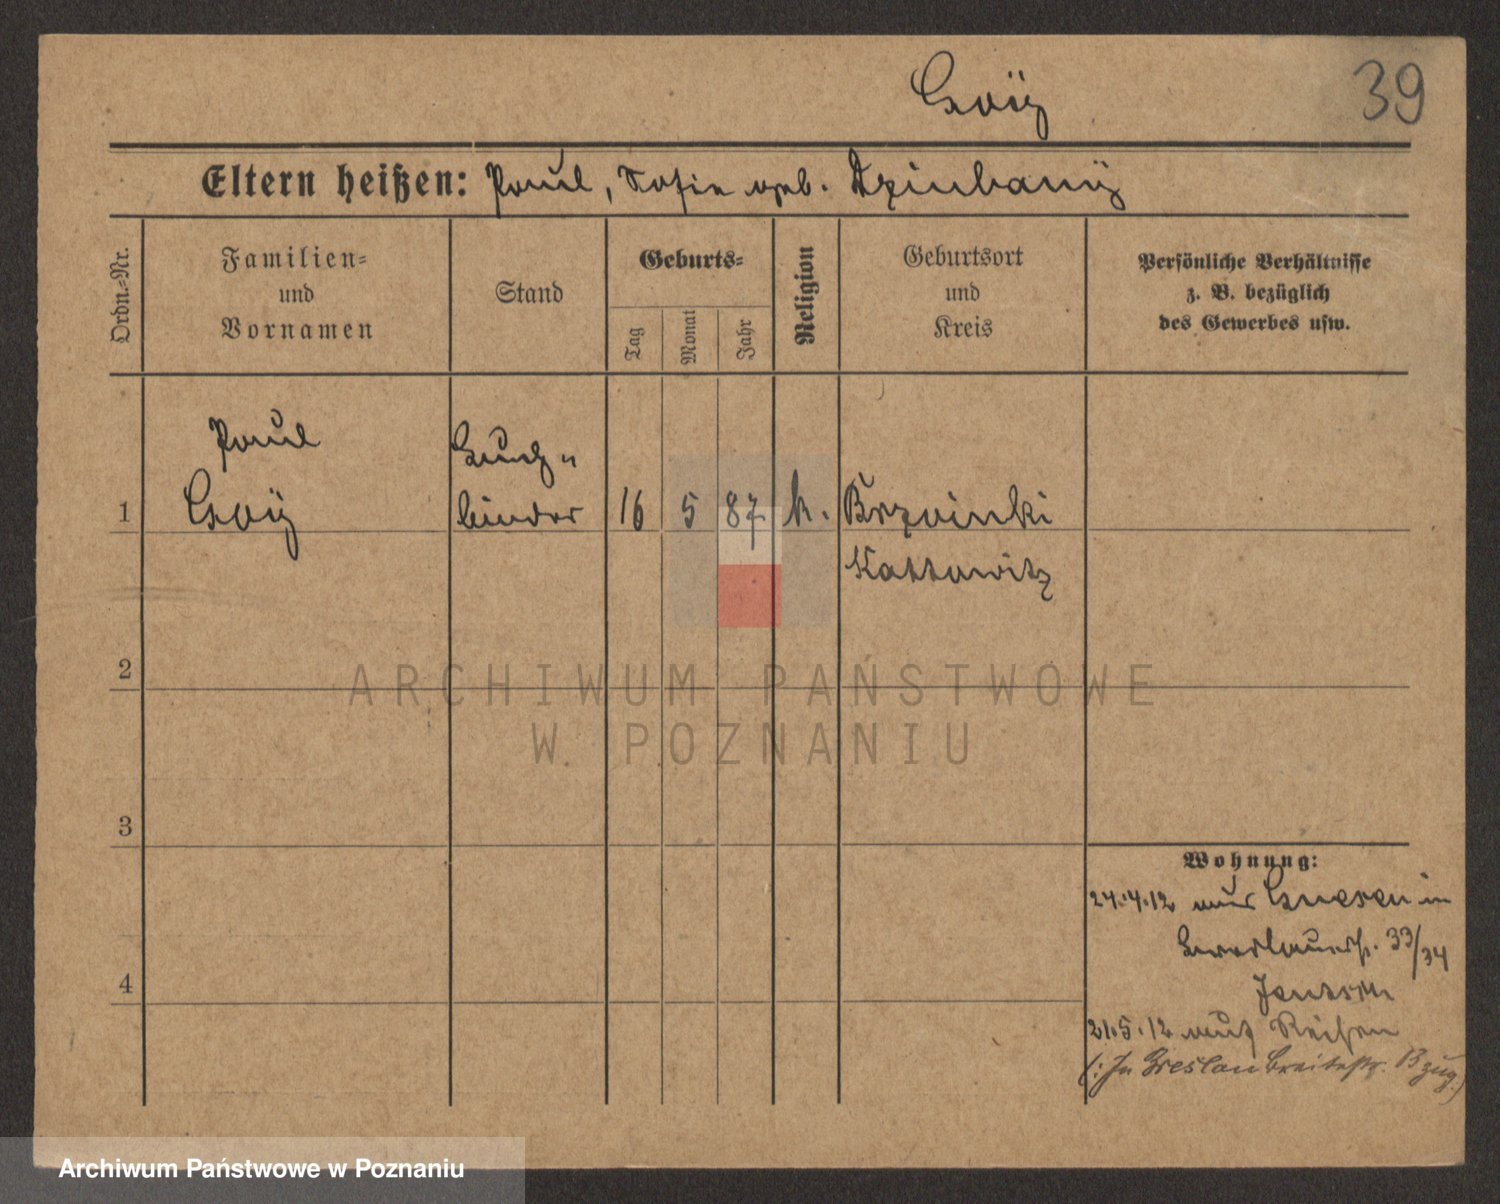 39
Eltern heißen: Paul, Sofie geb.
Ordn.-Nr.
Familien-
und
Vornamen
Stand
Geburts-
Tag
Monat
Jahr
Religion
Geburtsort
und
Kreis
Persönliche Verhältnisse
z. B. bezüglich
des Gewerbes usw.
Paul
Buch-
1 binder 16 5 87 k. Brzoinki
Kattowitz
2
3
4
Wohnung:
24.4.12 aus Gnesen in
Breslauerstr. 33/34
21.5.12 auf Reisen
(: In Breslau Breitestr. zug.)
ARCHIWUM PAŃSTWOWE
W POZNANIU
Archiwum Państwowe w Poznaniu